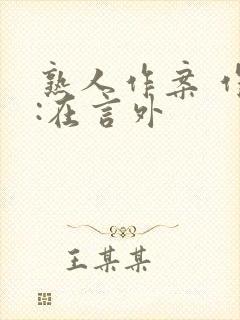 熟人作案
:在言外
王某某